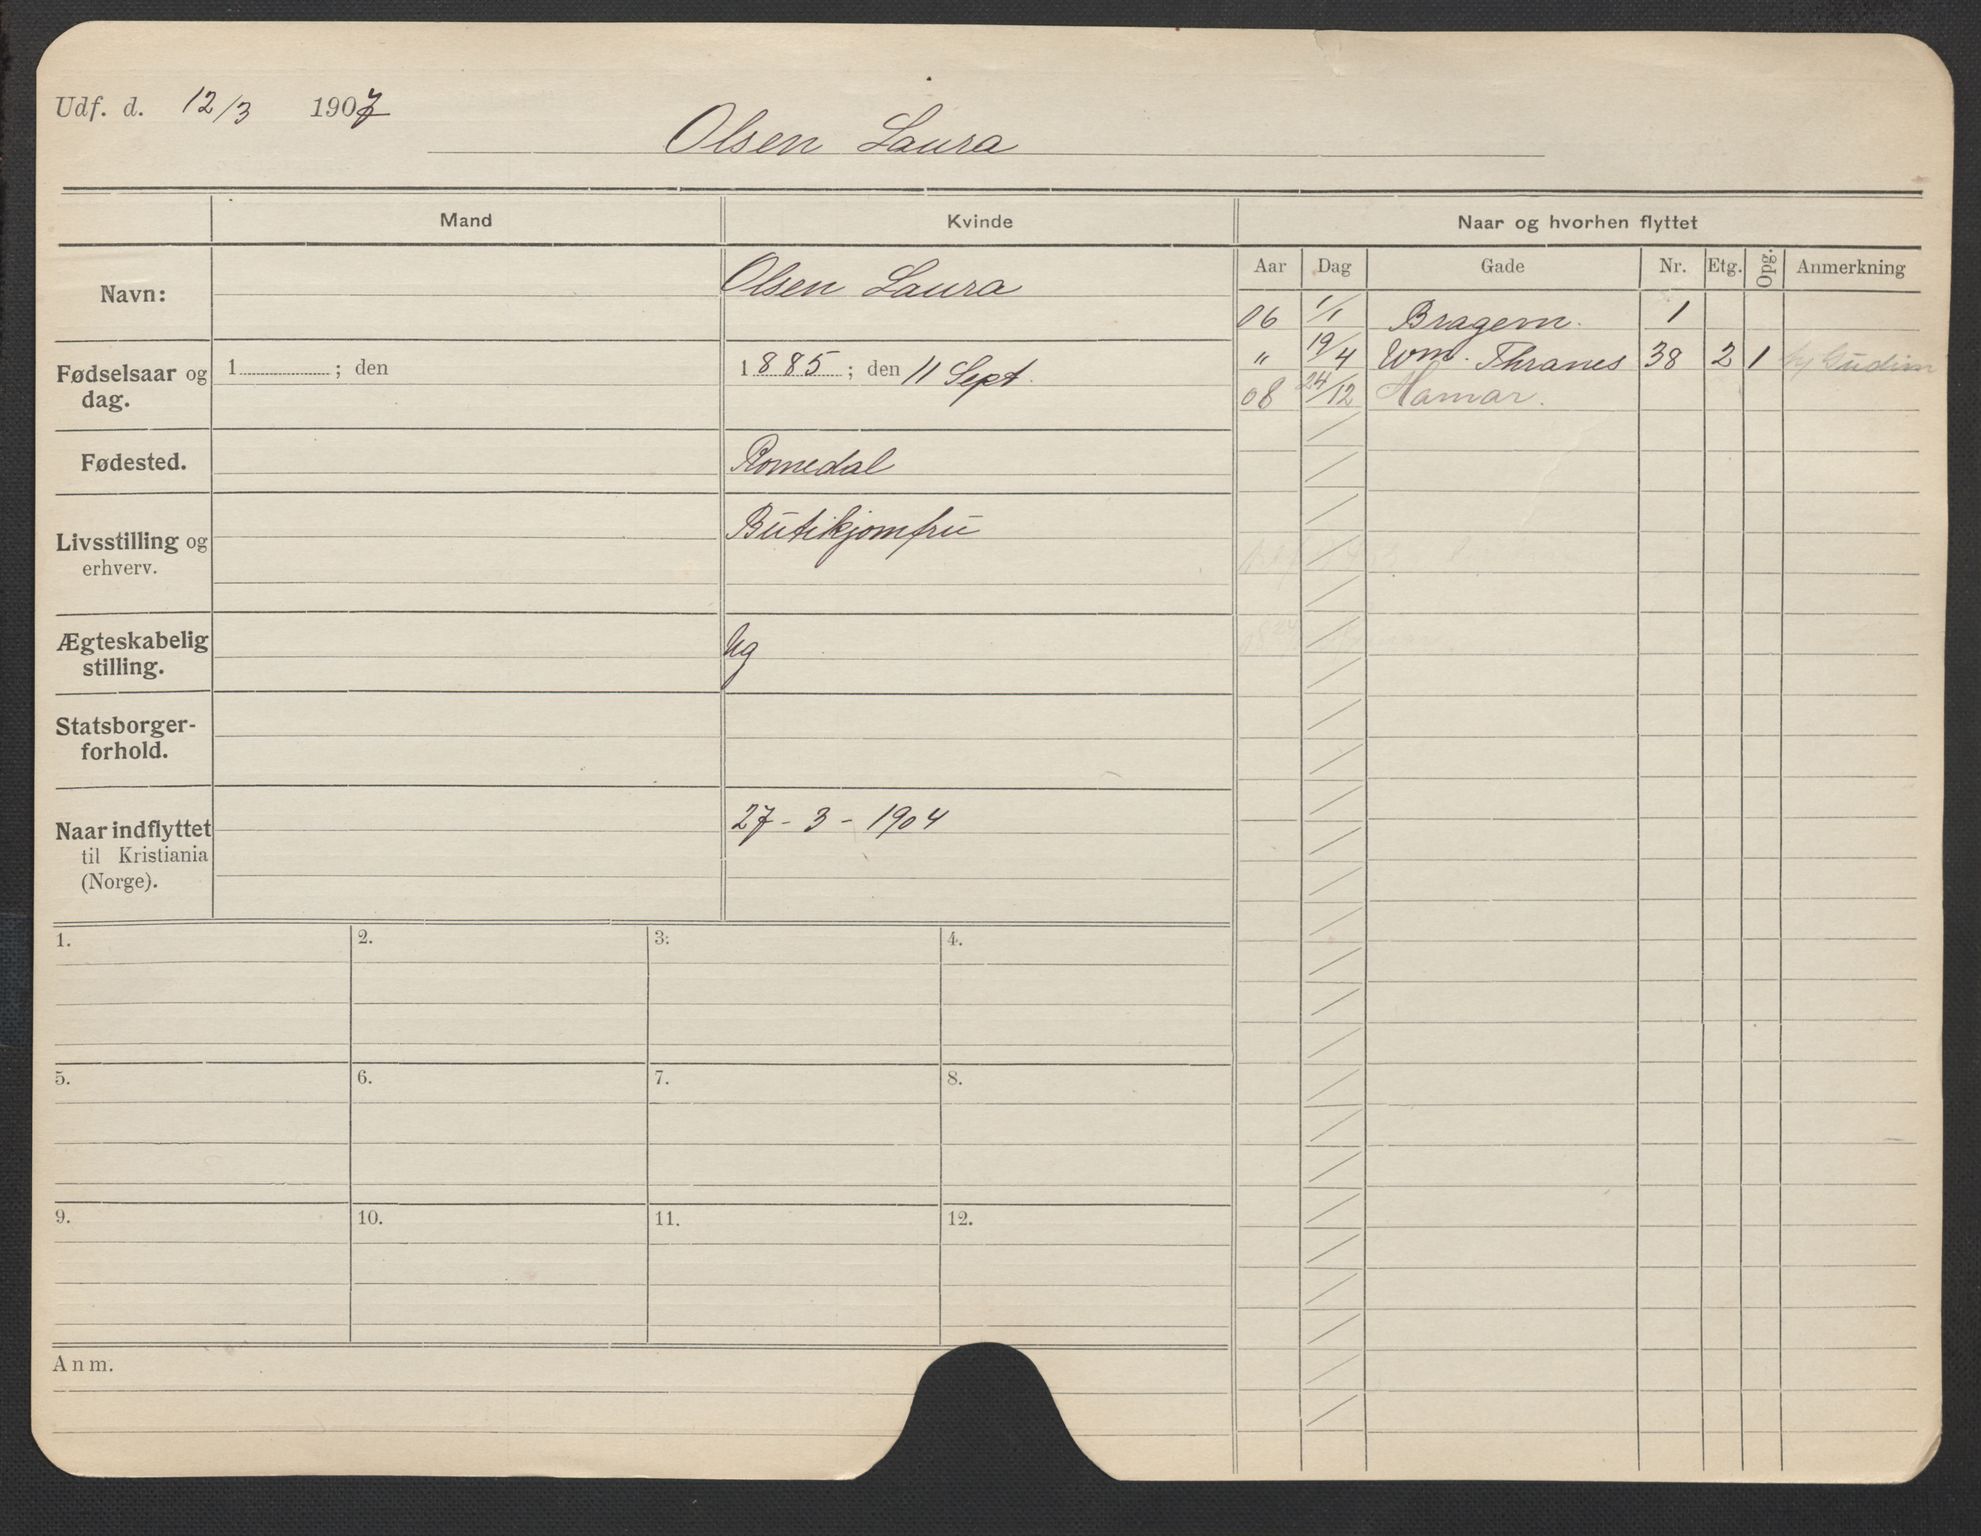 Udf. d. 12/3 1907
Olsen Laura
Mand
Kvinde
Naar og hvorhen flyttet
Navn:
Olsen Laura
Aar Dag Gade Nr. Etg. Opg. Anmerkning
06 1/1 Bragern. 1
" 19/4 Wm. Thranes 38 2 1 Gudim
08 24/12 Hamar.
Fødselsaar og
dag.
1 ; den
1885 ; den 11 Sept.
Fødested.
Romedal
Livsstilling og
erhverv.
Butikjomfru
Ægteskabelig
stilling.
ug
Statsborger-
forhold.
Naar indflyttet
til Kristiania
(Norge).
27 - 3 - 1904
1. 2. 3. 4.
5. 6. 7. 8.
9. 10. 11. 12.
Anm.